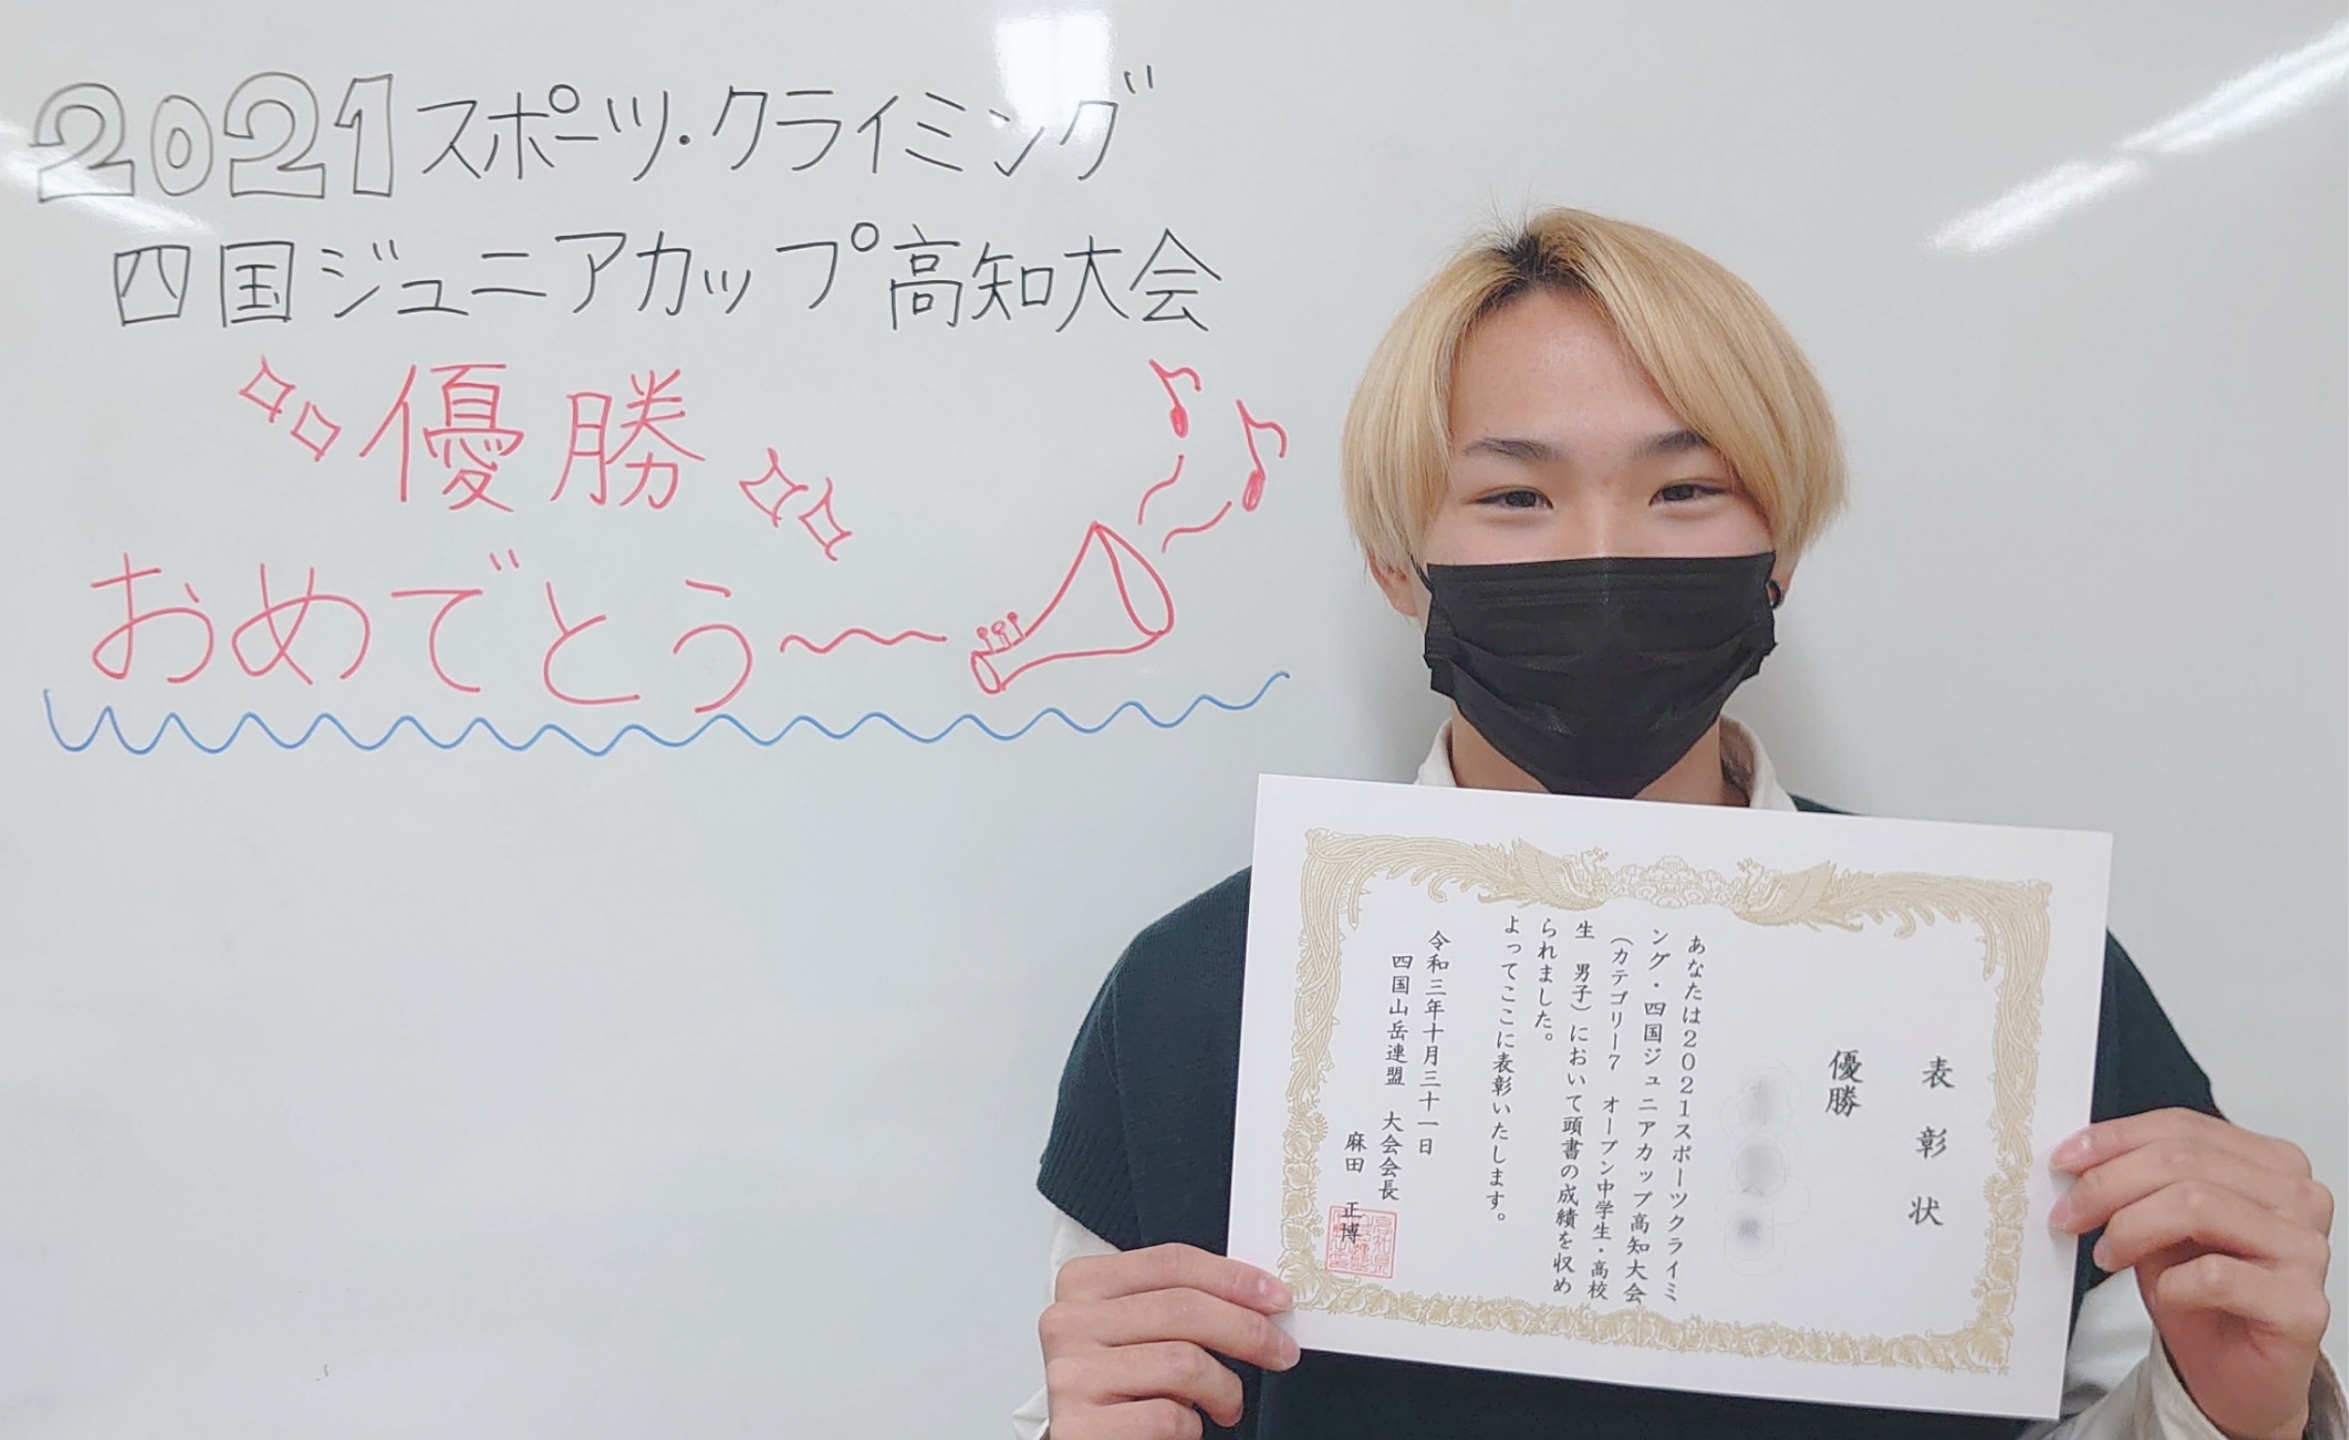 2021スポーツ・クライミング
四国ジュニアカップ高知大会
優勝
おめでとう〜〜
表彰状
優勝
あなたは2021スポーツクライミ
ング・四国ジュニアカップ高知大会
（カテゴリー7　オープン中学生・高校
生　男子）において頭書の成績を収め
られました。
よってここに表彰いたします。
令和三年十月三十一日
四国山岳連盟　大会会長
麻田　正博